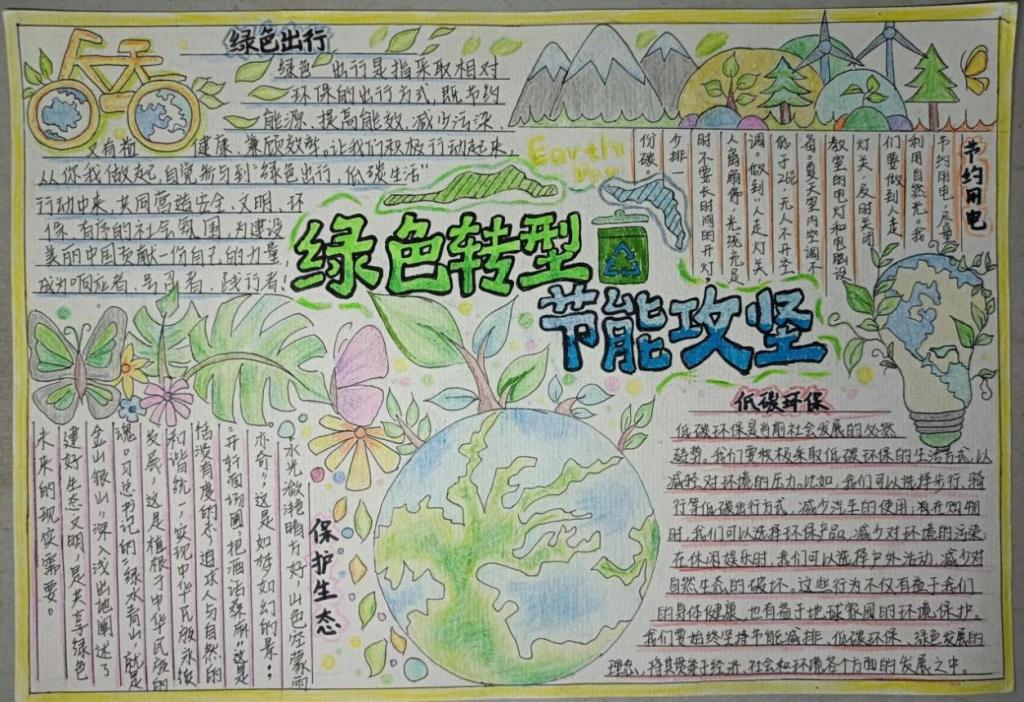 绿色出行
绿色 出行是指采取相对
环保的出行方式,既节约
能源、提高能效、减少污染、
又有益 健康、兼顾效率。让我们积极行动起来,
从你我做起,自觉参与到“绿色出行,低碳生活”
行动中来,共同营造安全、文明、环
保、有序的社会氛围,为建设
美丽中国贡献一份自己的力量
成为响应者、号召者、践行者!
Earth
绿色转型
节能攻坚
节约用电
节约用电
利用自然光。我
们要做到人走
灯关,及时关闭
教室的电灯和电器设
备。夏天室内空调不
低于26℃,无人不开空
调。做到“人走灯关
人离扇停”,光线充足
时不要长时间的开灯。
少排一
份碳。
低碳环保
低碳环保是当前社会发展的必然
趋势。我们要积极采取低碳环保的生活方式,以
减轻对环境的压力。比如,我们可以选择步行、骑
行等低碳出行方式,减少汽车的使用;在购物
时,我们可以选择环保产品,减少对环境的污染;
在休闲娱乐时,我们可以选择户外活动,减少对
自然生态的破坏。这些行为不仅有益于我们
的身体健康,也有益于地球家园的环境保护。
我们要始终坚持节能减排、低碳环保、绿色发展的
理念,将其贯穿于经济、社会和环境各个方面的发展之中。
保护生态
“水光潋滟晴方好,山色空蒙雨
亦奇”,这是如梦如幻的景;
“开轩面场圃,把酒话桑麻”,这是
恬淡有度的术。追求人与自然的
和谐统一,实现中华民族永续
发展,这是植根于中华民族的
魂。习总书记的“绿水青山就是
金山银山”深入浅出地阐述了
建好生态文明,是共享绿色
未来的现实需要。